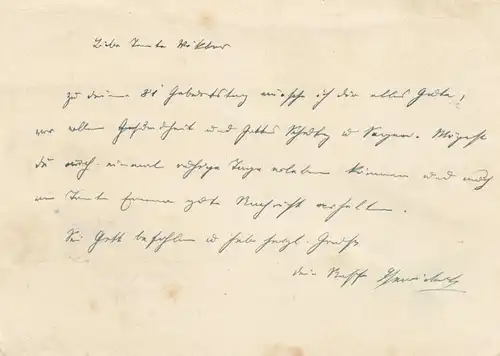 Liebe Tante
zu deinem 81 Geburtstag wünsche ich dir alles Gute,
vor allem Gesundheit und Gottes Schutz u Segen. Mögest
du noch einmal ruhige Tage erleben können und
von Tante Emma gute Nachricht erhalten.
Sei Gott befohlen u habe herzl. Grüße
dein Neffe